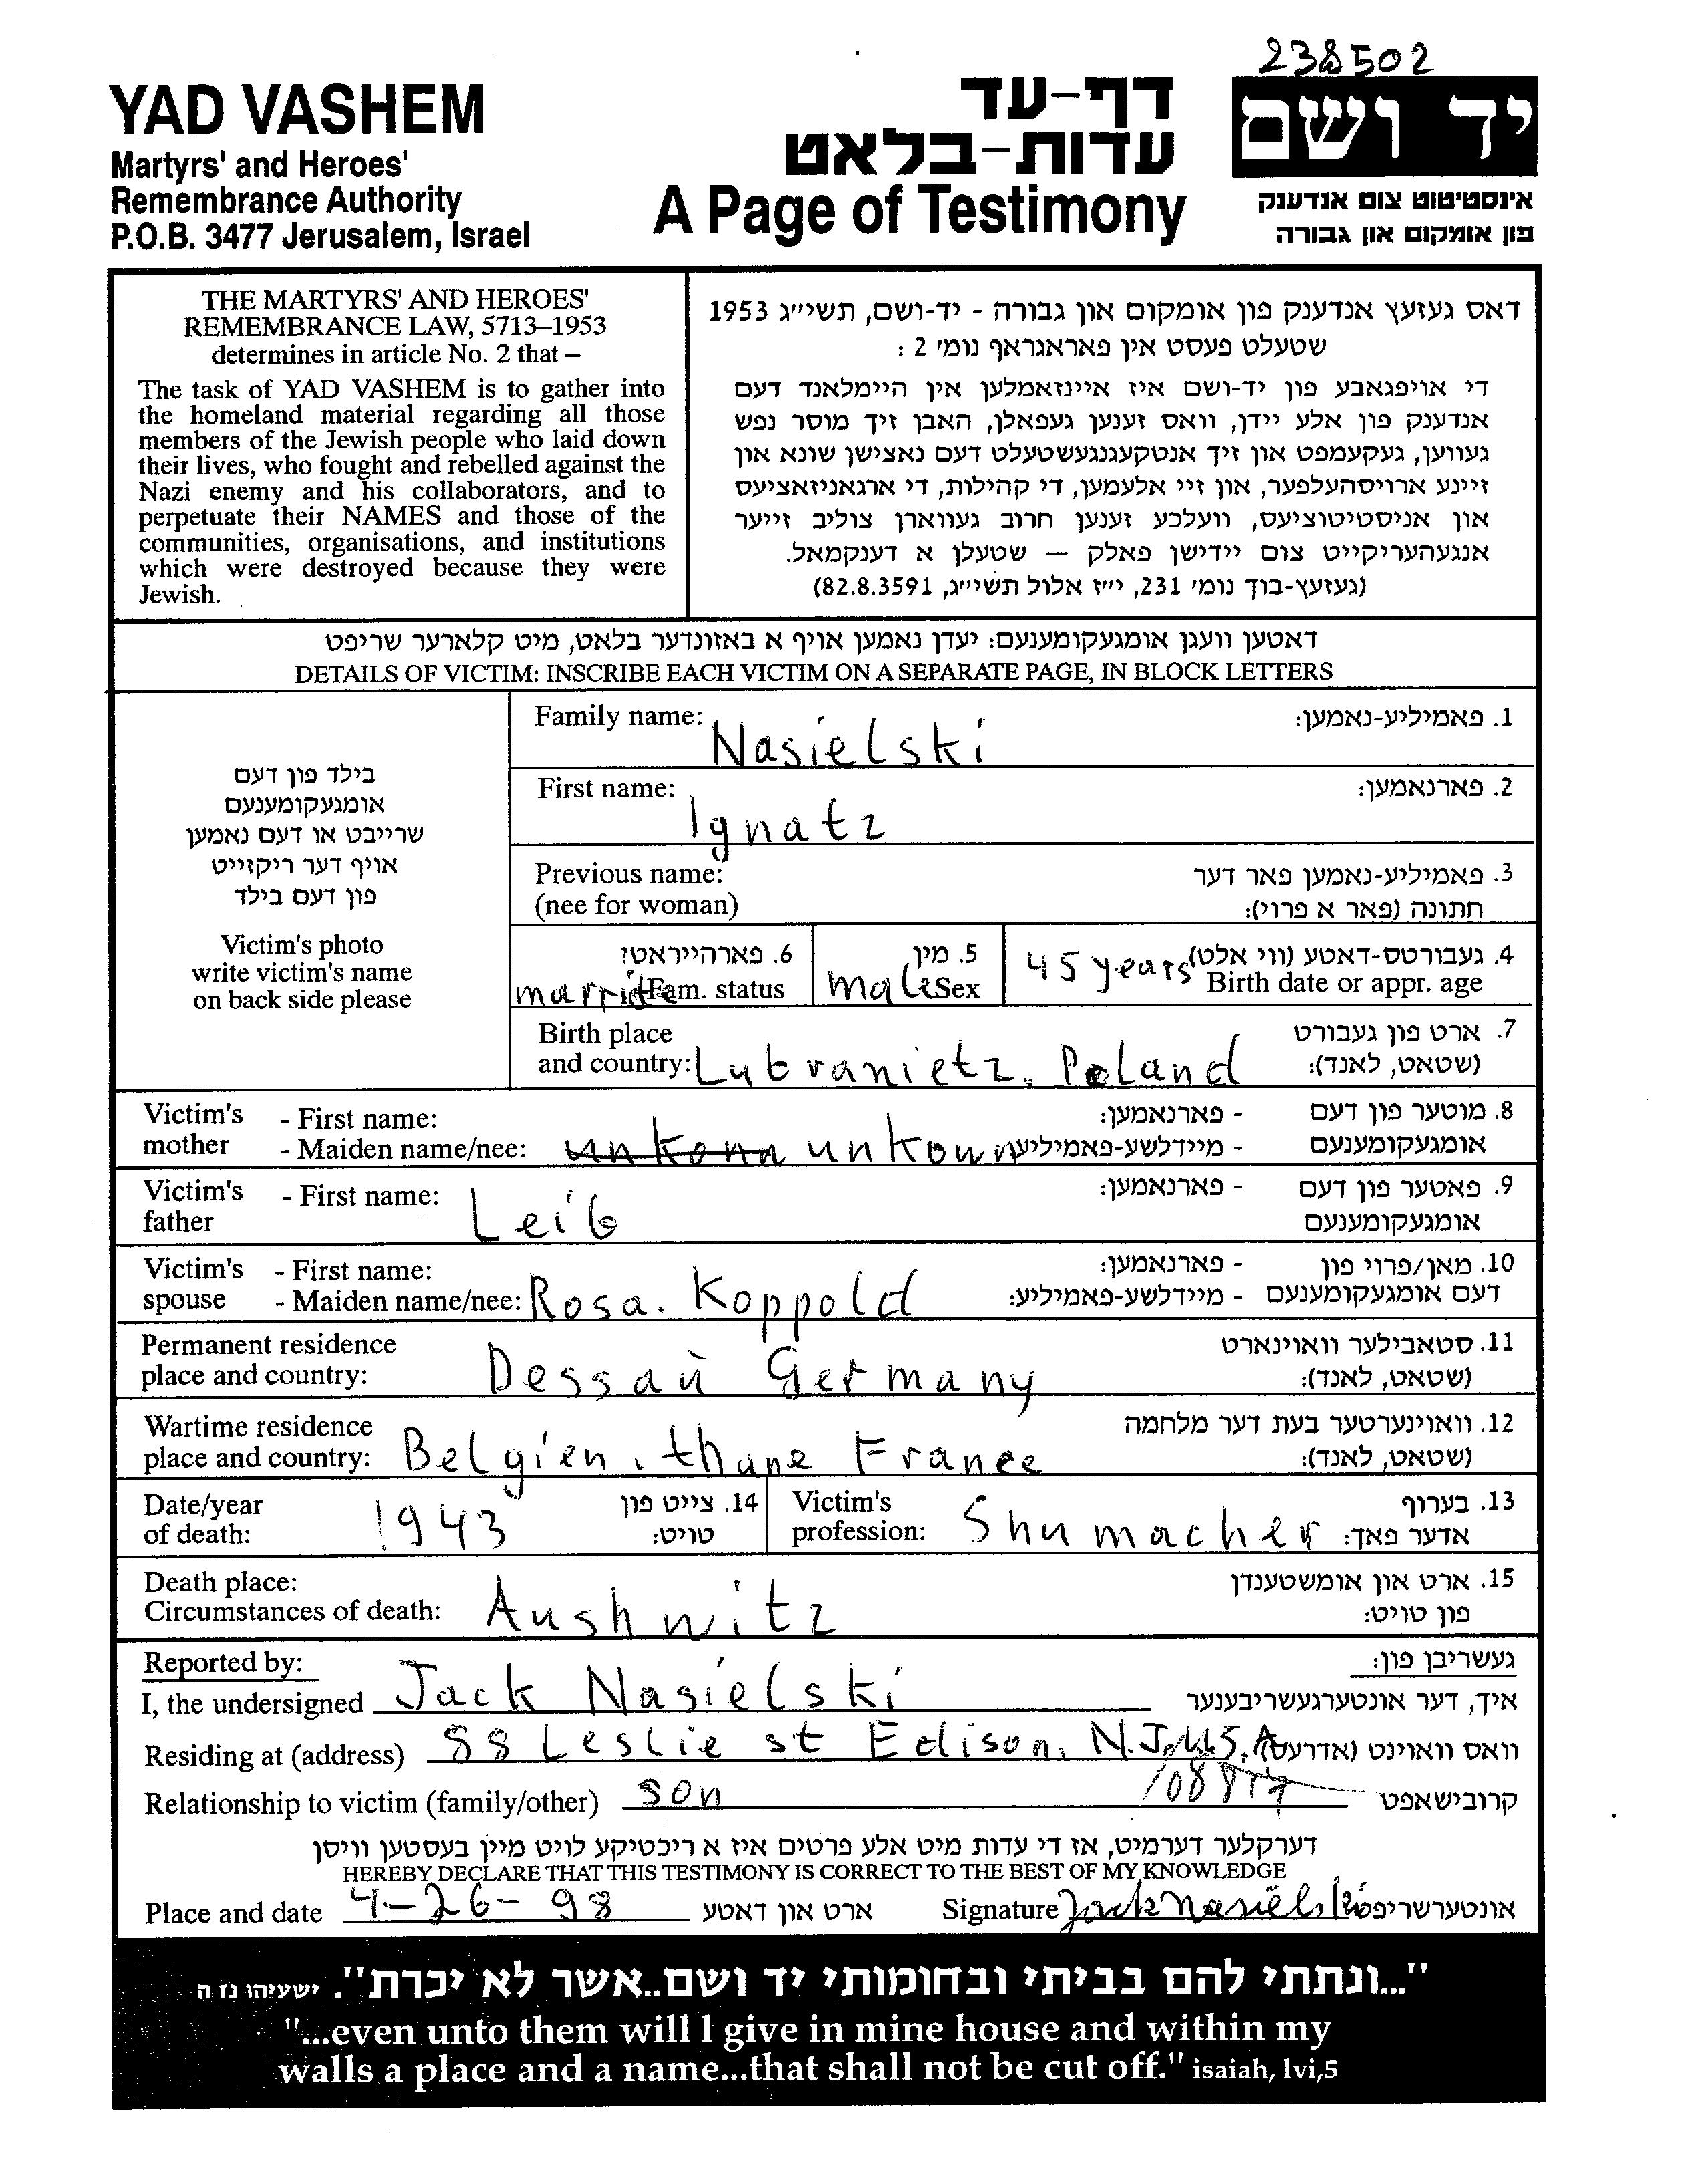 238502
YAD VASHEM
Martyrs' and Heroes'
Remembrance Authority
P.O.B. 3477 Jerusalem, Israel
דף-עד
עדות-בלאט
A Page of Testimony
יד ושם
אינסטיטוט צום אנדענק
פון אומקום און גבורה
THE MARTYRS' AND HEROES'
REMEMBRANCE LAW, 5713–1953
determines in article No. 2 that –
The task of YAD VASHEM is to gather into
the homeland material regarding all those
members of the Jewish people who laid down
their lives, who fought and rebelled against the
Nazi enemy and his collaborators, and to
perpetuate their NAMES and those of the
communities, organisations, and institutions
which were destroyed because they were
Jewish.
דאס געזעץ אנדענק פון אומקום און גבורה - יד-ושם, תשי״ג 1953
שטעלט פעסט אין פאראגראף נומ׳ 2 :
די אויפגאבע פון יד-ושם איז איינזאמלען אין היימלאנד דעם
אנדענק פון אלע יידן, וואס זענען געפאלן, האבן זיך מוסר נפש
געווען, געקעמפט און זיך אנטקעגנגעשטעלט דעם נאצישן שונא און
זיינע ארויסהעלפער, און זיי אלעמען, די קהילות, די ארגאניזאציעס
און אניסטיטוציעס, וועלכע זענען חרוב געווארן צוליב זייער
אנגעהעריקייט צום יידישן פאלק – שטעלן א דענקמאל.
(געזעץ-בוך נומ׳ 231, י״ז אלול תשי״ג, 82.8.3591)
דאטען וועגן אומגעקומענעם: יעדן נאמען אויף א באזונדער בלאט, מיט קלארער שריפט
DETAILS OF VICTIM: INSCRIBE EACH VICTIM ON A SEPARATE PAGE, IN BLOCK LETTERS
בילד פון דעם
אומגעקומענעם
שרייבט או דעם נאמען
אויף דער ריקזייט
פון דעם בילד
Victim's photo
write victim's name
on back side please
Family name: Nasielski 1. פאמיליע-נאמען:
First name: Ignatz 2. פארנאמען:
Previous name: 3. פאמיליע-נאמען פאר דער
(nee for woman) חתונה (פאר א פרוי):
6. פארהייראט? 5. מין 4. געבורטס-דאטע (ווי אלט)
Fam. status male Sex 45 years Birth date or appr. age
Birth place 7. ארט פון געבורט
and country: Lubranietz, Poland (שטאט, לאנד):
Victim's - First name: - פארנאמען: 8. מוטער פון דעם
mother - Maiden name/nee: unkona unkown - מיידלשע-פאמיליע: אומגעקומענעם
Victim's - First name: Leib - פארנאמען: 9. פאטער פון דעם
father אומגעקומענעם
Victim's - First name: - פארנאמען: 10. מאן/פרוי פון
spouse - Maiden name/nee: Rosa. Koppold - מיידלשע-פאמיליע: דעם אומגעקומענעם
Permanent residence 11. סטאבילער וואוינארט
place and country: Dessau Germany (שטאט, לאנד):
Wartime residence 12. וואוינערטער בעת דער מלחמה
place and country: Belgien, thane France (שטאט, לאנד):
Date/year 14. צייט פון Victim's 13. בערוף
of death: 1943 טויט: profession: Shumacher אדער פאך:
Death place: 15. ארט און אומשטענדן
Circumstances of death: Aushwitz פון טויט:
Reported by: געשריבן פון:
I, the undersigned Jack Nasielski איך, דער אונטערגעשריבענער
Residing at (address) 88 Leslie st Edison, N.J. U.S.A וואס וואוינט (אדרעס)
Relationship to victim (family/other) son 08817 קרובישאפט
דערקלער דערמיט, אז די עדות מיט אלע פרטים איז א ריכטיקע לויט מיין בעסטען וויסן
HEREBY DECLARE THAT THIS TESTIMONY IS CORRECT TO THE BEST OF MY KNOWLEDGE
Place and date 4-26-98 ארט און דאטע Signature Jack Nasielski אונטערשריפט
"...ונתתי להם בביתי ובחומותי יד ושם..אשר לא יכרת". ישעיהו נז ה
"...even unto them will I give in mine house and within my
walls a place and a name...that shall not be cut off." isaiah, lvi,5